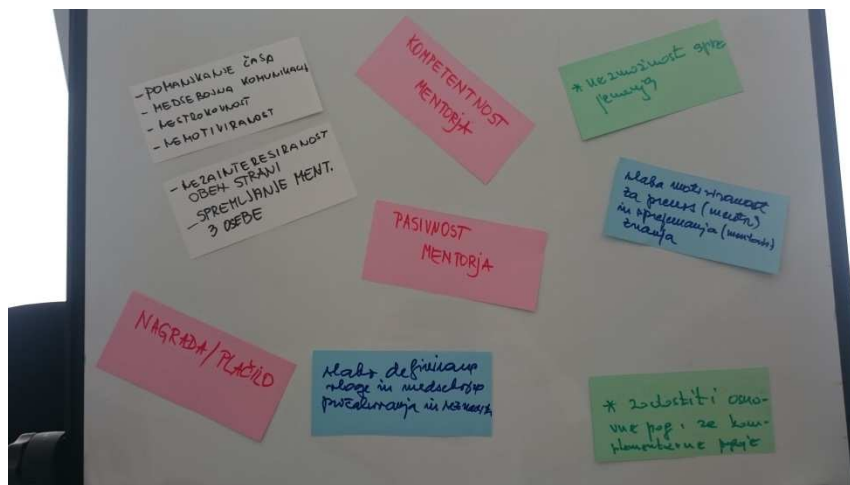 - POMANJKANJE ČASA
- MEDSEBOJNA KOMUNIKACIJ
- NESTROKOVNOST
- NEMOTIVIRANOST
- NEZAINTERESIRANOST
OBEH STRANI
- SPREMLJANJE MENT.
3 OSEBE
KOMPETENTNOST
MENTORJA
* nezmožnost spre
jemanja
slaba motiviranost
za prenos (mentor)
in sprejemanja (mentoris)
znanja
PASIVNOST
MENTORJA
NAGRADA/PLAČILO
slabo definirane
vloge in medsebojna
pričakovanja in
* zadostiti osno-
vne pog. za kom-
plementarne